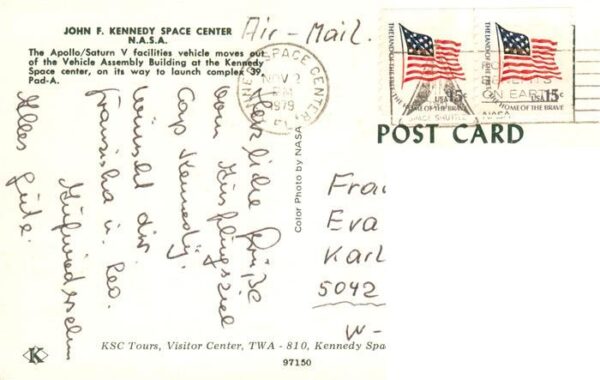 JOHN F. KENNEDY SPACE CENTER
N.A.S.A.
The Apollo/Saturn V facilities vehicle moves out
of the Vehicle Assembly Building at the Kennedy
Space center, on its way to launch complex 39,
Pad-A.
Air-Mail.
SPACE CENTER
NOV 2
PM
1979
THE LAND OF THE FREE THE HOME OF THE BRAVE
USA 15c
THE LAND OF THE FREE THE HOME OF THE BRAVE
USA 15c
ON EARTH
SPACE SHUTTLE
NASA
POST CARD
Herzliche Grüße
vom
Cap Kennedy.
wünscht dir
Franziska u. Leo.
Aufwiedersehn
Alles Gute.
Color Photo by NASA
Frau
Eva
Karl
5042
W-
K
KSC Tours, Visitor Center, TWA - 810, Kennedy Spa
97150